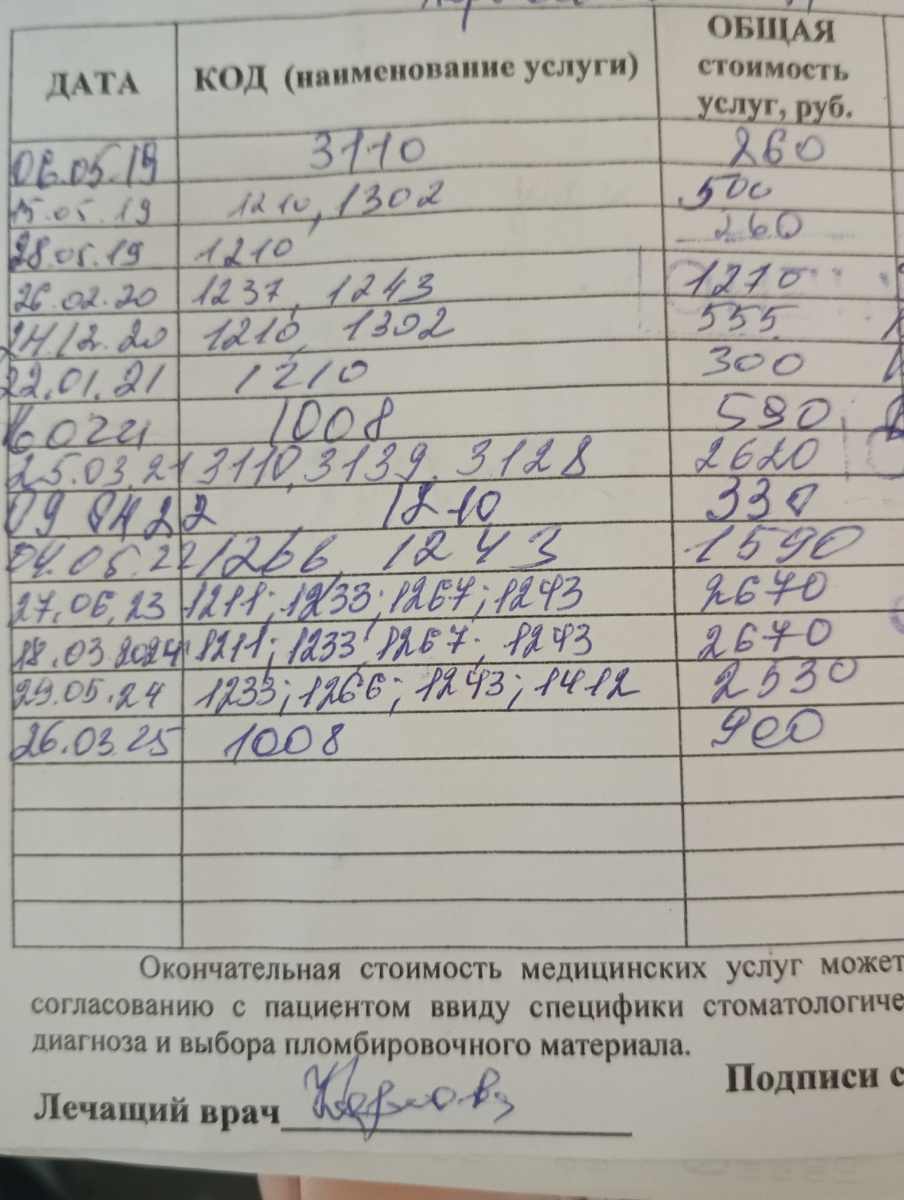 ДАТА КОД (наименование услуги) ОБЩАЯ
стоимость
услуг, руб.
06.05.19 3110 260
15.05.19 1210, 1302 500
28.05.19 1210 260
26.02.20 1237, 1243 1270
24.12.20 1210, 1302 555
22.01.21 1210 300
1008 590
25.03.21 3110, 3139, 3128 2620
09 04 22 1210 330
04.05.22 1266, 1243 1590
27.06.23 1211; 1233; 1267; 1243 2670
18.03.2024 1211; 1233 1267; 1243 2670
29.05.24 1233; 1266; 1243; 1412 2530
26.03.25 1008 900
Окончательная стоимость медицинских услуг может
согласованию с пациентом ввиду специфики стоматологиче
диагноза и выбора пломбировочного материала.
Подписи с
Лечащий врач